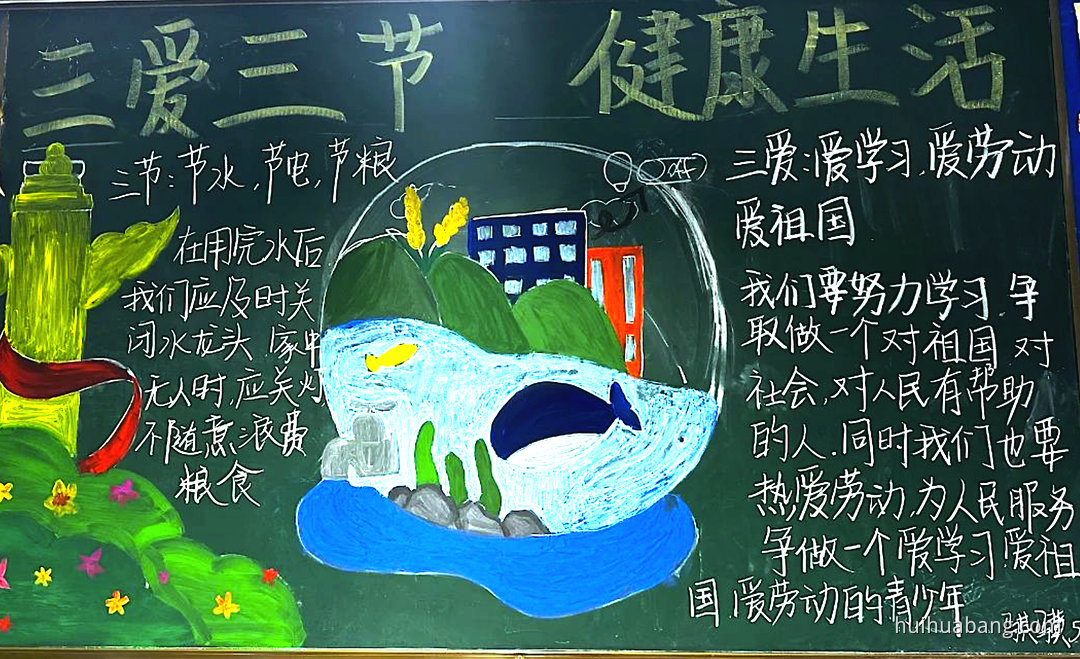 三爱三节 健康生活
三节:节水,节电,节粮
在用完水后
我们应及时关
闭水龙头.家中
无人时,应关灯
不随意浪费
粮食
三爱:爱学习,爱劳动
爱祖国
我们要努力学习.争
取做一个对祖国.对
社会,对人民有帮助
的人.同时我们也要
热爱劳动.为人民服务
争做一个爱学习.爱祖
国.爱劳动的青少年
huihuabang.com